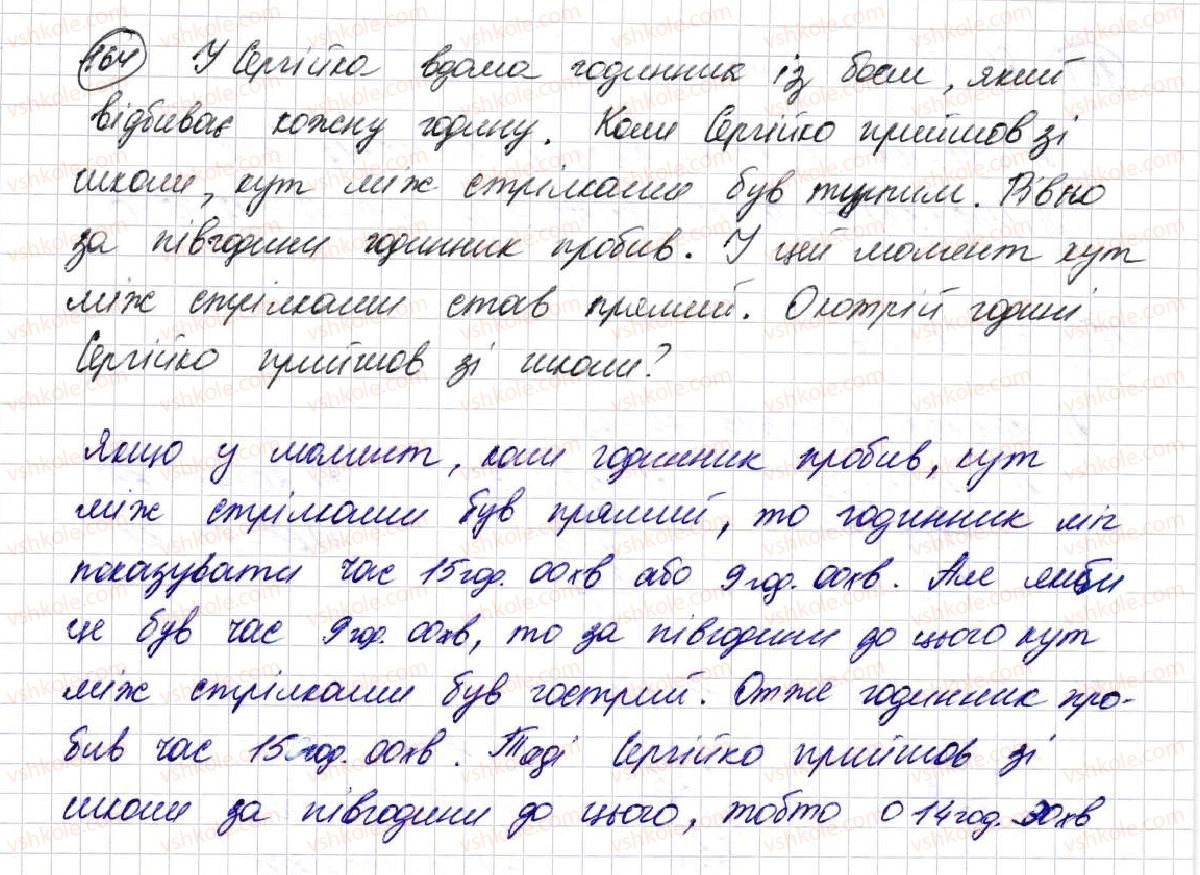 164 У Сергійка вдома годинник із боєм, який
відбиває кожну годину. Коли Сергійко прийшов зі
школи, кут між стрілками був тупим. Рівно
за півгодини годинник пробив. У цей момент кут
між стрілками став прямий. О котрій годині
Сергійко прийшов зі школи?
Якщо у момент, коли годинник пробив, кут
між стрілками був прямий, то годинник міг
показувати час 15 год. 00 хв або 9 год. 00 хв. Але якби
це був час 9 год. 00 хв, то за півгодини до цього кут
між стрілками був гострий. Отже годинник про-
бив час 15 год. 00 хв. Тоді Сергійко прийшов зі
школи за півгодини до цього, тобто о 14 год. 30 хв